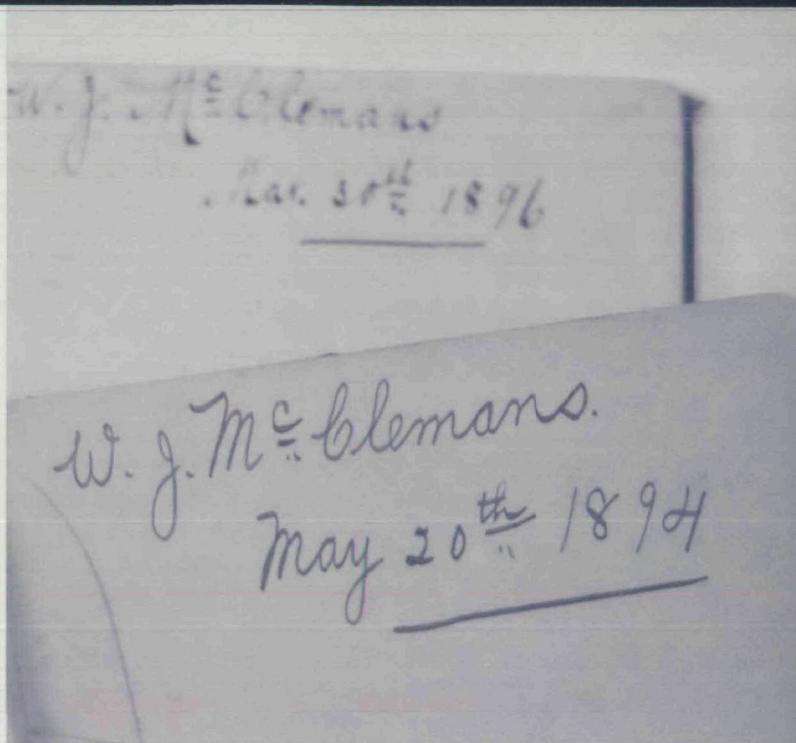 W. J. Mc Clemans
Mar. 30th 1896
W. J. Mc Clemans.
May 20th 1894